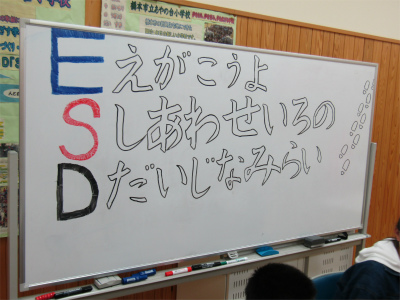 橋本市立あやの台小学校
Eえがこうよ
Sしあわせいろの
Dだいじなみらい